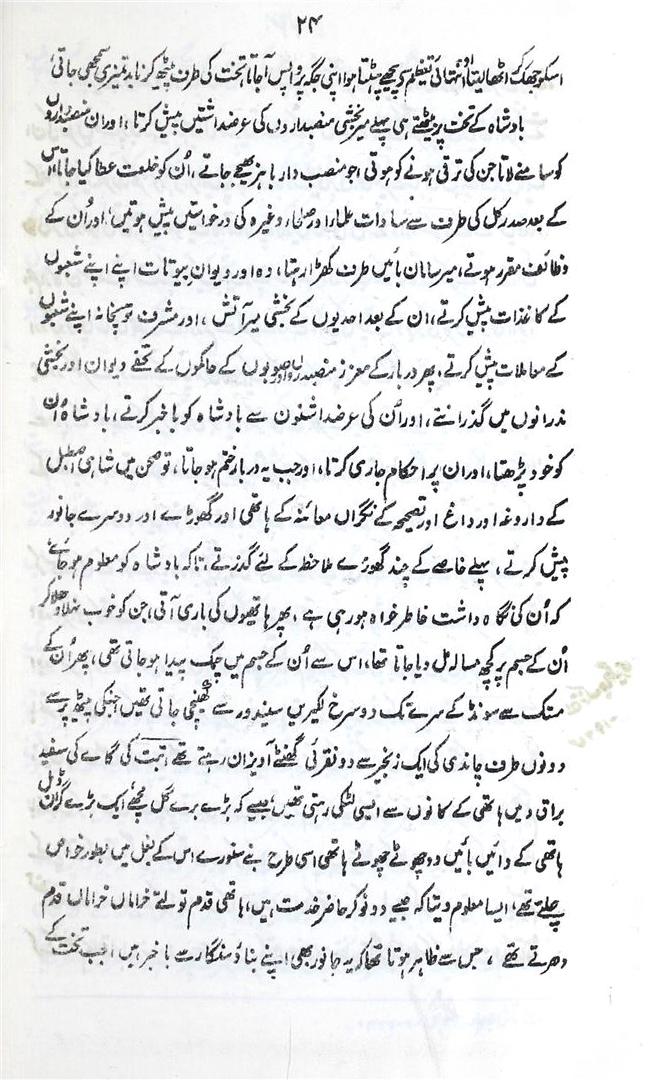 ۲۴
اسکو جھک کر اٹھا لیتا اور انتہائی تعظیم سے پیچھے ہٹتا ہوا اپنی جگہ پر واپس آ جاتا، تخت کی طرف پیٹھ کرنا بد تمیزی سمجھی جاتی،
بادشاہ کے تخت پر بیٹھتے ہی پہلے میر بخشی منصبداروں کی عرضداشتیں پیش کرتا، اور ان منصبداروں
کو سامنے لاتا جن کی ترقی ہونے کو ہوتی، جو منصب دار باہر بھیجے جاتے، اُن کو خلعت عطا کیا جاتا، اس
کے بعد صدر کل کی طرف سے سادات علماء اور صلحاء وغیرہ کی درخواستیں پیش ہوتیں، اور اُن کے
وظائف مقرر ہوتے، میر سامان بائیں طرف کھڑا رہتا، وہ اور دیوان بیوتات اپنے اپنے شعبوں
کے کاغذات پیش کرتے، ان کے بعد احدیوں کے بخشی میر آتش، اور مشرف توپخانہ اپنے شعبوں
کے معاملات پیش کرتے، پھر دربار کے معزز منصبداروں اور صوبوں کے حاکموں کے تحفے دیوان اور بخشی
نذرانوں میں گذرانتے، اور اُن کی عرضداشتوں سے بادشاہ کو باخبر کرتے، بادشاہ اُن
کو خود پڑھتا، اور ان پر احکام جاری کرتا، اور جب یہ دربار ختم ہو جاتا، تو صحن میں شاہی اصطبل
کے داروغہ اور داغ اور تصحیحہ کے نگراں معائنہ کے ہاتھی اور گھوڑے اور دوسرے جانور
پیش کرتے، پہلے خاصے کے چند گھوڑے ملاحظہ کے لئے گذرتے، تاکہ بادشاہ کو معلوم ہو جائے
کہ اُن کی نگاہ داشت خاطر خواہ ہو رہی ہے، پھر ہاتھیوں کی باری آتی، جن کو خوب نہلا دھلا کر
اُن کے جسم پر کچھ مسالہ مل دیا جاتا تھا، اس سے اُن کے جسم میں چمک پیدا ہو جاتی تھی، پھر اُن کے
مستک سے سونڈ کے سرے تک دو سرخ لکیریں سیندور سے کھینچی جاتی تھیں، جنکی پیٹھ پر سے
دونوں طرف چاندی کی ایک زنجیر سے دو نقرئی گھنٹے آویزان رہتے تھے، تبت کی گائے کی سفید
براق دمیں ہاتھی کے کانوں سے ایسی لٹکی رہتی تھیں، جیسے کہ بڑے بڑے گل مچھے، ایک بڑے گران ڈیل
ہاتھی کے دائیں بائیں دو چھوٹے چھوٹے ہاتھی اسی طرح بنے سنورے اس کے بغل میں بطور خواص
چلتے تھے، ایسا معلوم ہوتا کہ جیسے دو نوکر حاضر خدمت ہیں، ہاتھی قدم تولتے خراماں خراماں قدم
دھرتے تھے، جس سے ظاہر ہوتا تھا کہ یہ جانور بھی اپنے بناؤ سنگار سے با خبر ہیں، جب تخت کے